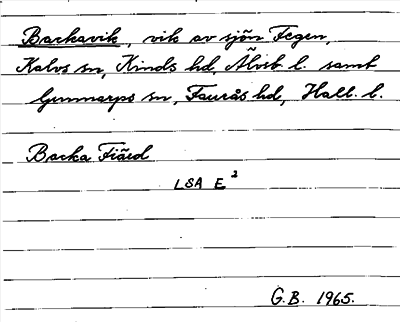 Backavik, vik av sjön Fegen,
Kalvs sn, Kinds hd, Älvsb. l. samt
Gunnarps sn, Faurås hd, Hall. l.
Backa Fiärd
LSA E²
G.B. 1965.